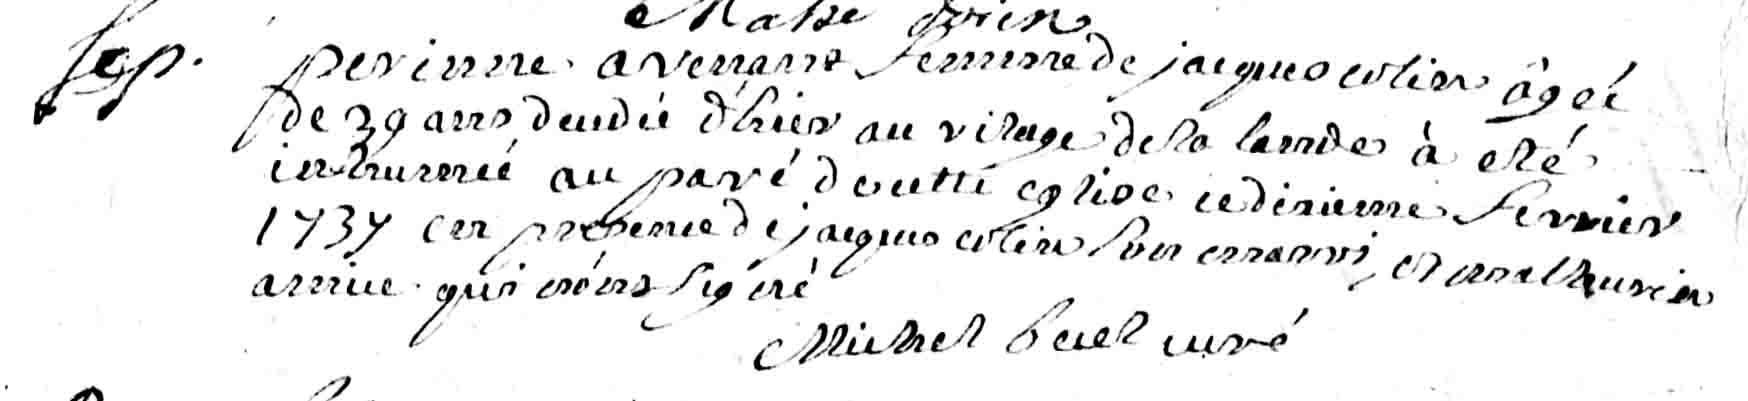 sep.
perinne avenant femme de jacques colin âgéé
de 39 ans deudié d'hier au vilage de la lande à eté
inhumée au pavé de cette eglise ce dixieme fevrier
1737 en presence de jacques colin son mari, et mathurin
qui n'ont signé
Michel curé